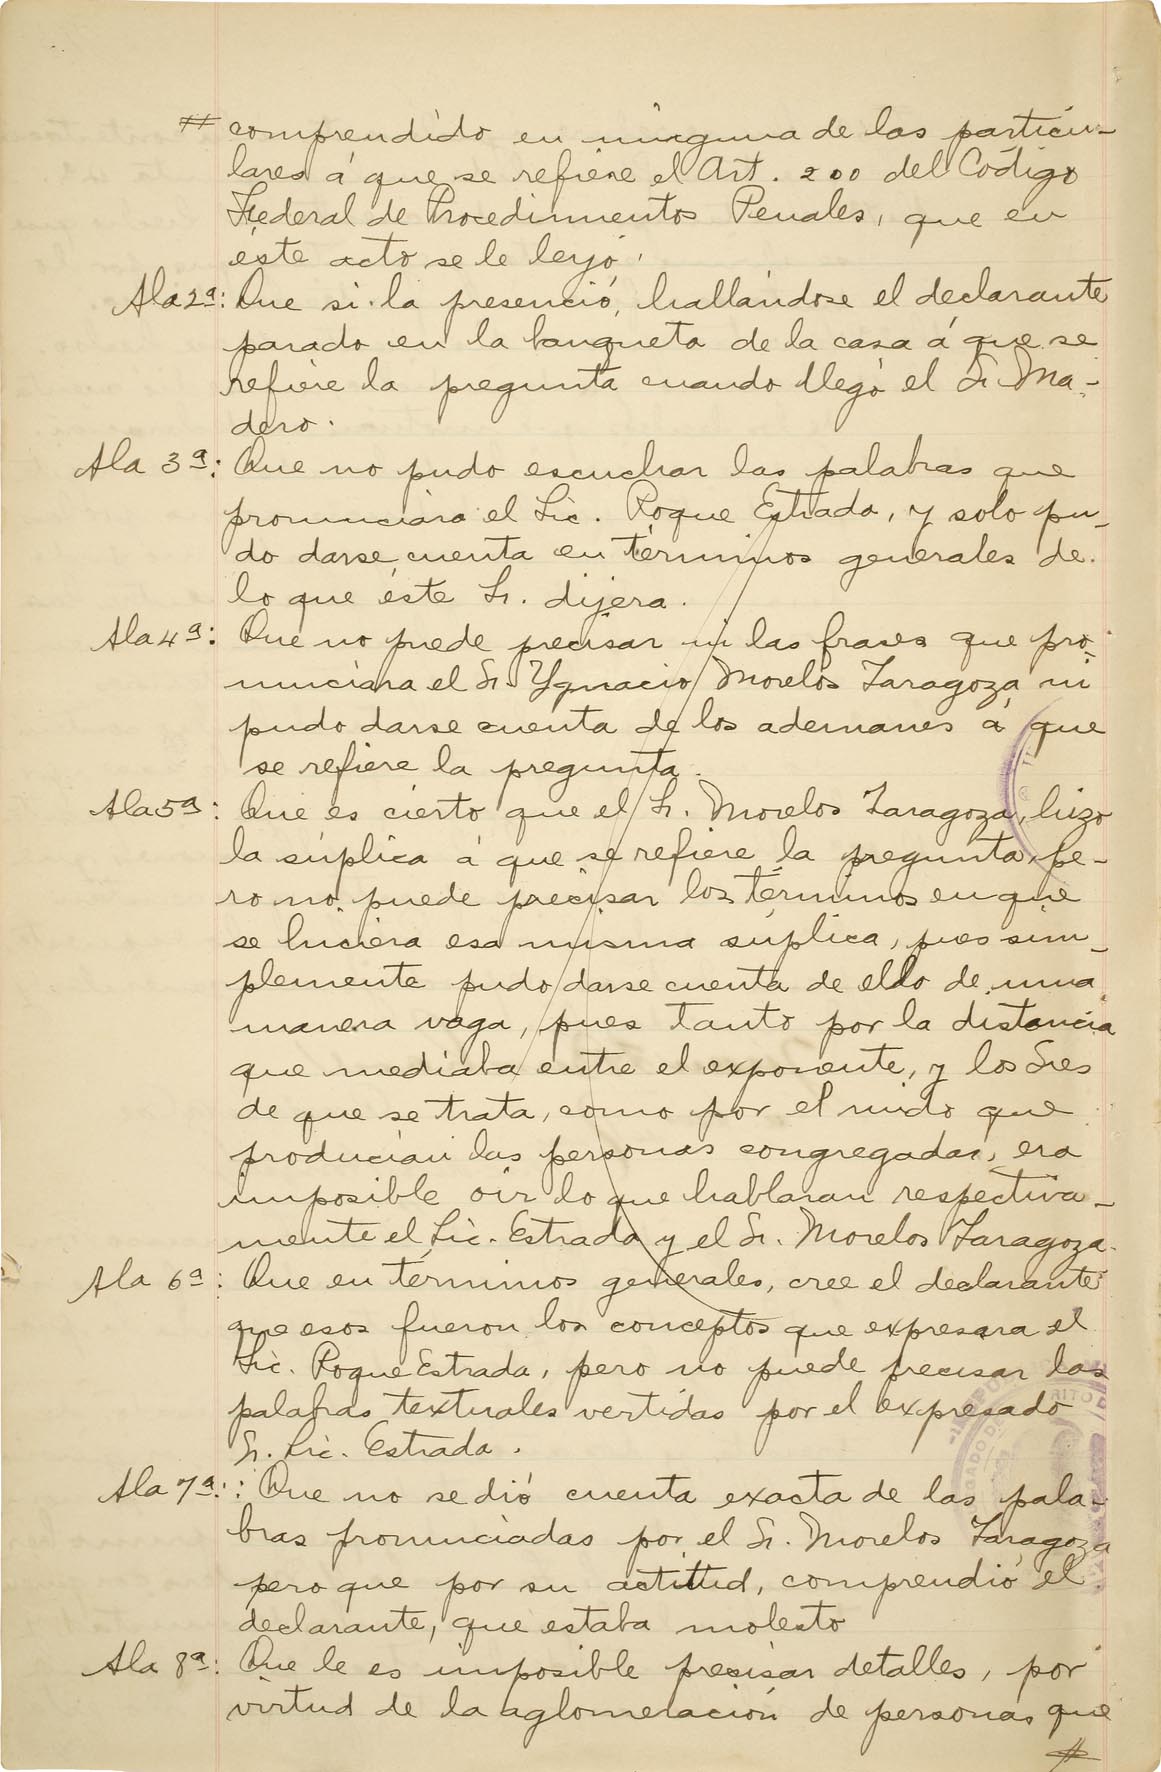 # comprendido en ninguna de las particu-
lares á que se refiere el Art. 200 del Código
Federal de Procedimientos Penales, que en
éste acto se le leyó.
A la 2ª: Que si la presenció, hallándose el declarante
parado en la banqueta de la casa á que se
refiere la pregunta cuando llegó el Sr. Ma-
dero.
A la 3ª: Que no pudo escuchar las palabras que
pronunciara el Lic. Roque Estrada, y solo pu-
do darse cuenta en términos generales de
lo que éste Sr. dijera.
A la 4ª: Que no puede precisar ni las frases que pro-
nunciara el Sr. Ygnacio Morelos Zaragoza ni
pudo darse cuenta de los ademanes á que
se refiere la pregunta.
A la 5ª: Que es cierto que el Sr. Morelos Zaragoza, hizo
la súplica á que se refiere la pregunta, pe-
ro no puede precisar los términos en que
se hiciera esa misma súplica, pues sim-
plemente pudo darse cuenta de ello de una
manera vaga, pues tanto por la distancia
que mediaba entre el exponente, y los Sres
de que se trata, como por el ruido que
producían las personas congregadas, era
imposible oir lo que hablaran respectiva-
mente el Lic. Estrada y el Sr. Morelos Zaragoza.
A la 6ª: Que en términos generales, cree el declarante
que esos fueron los conceptos que expresara el
Lic. Roque Estrada, pero no puede precisar las
palabras textuales vertidas por el expresado
Sr. Lic. Estrada.
A la 7ª: Que no se dió cuenta exacta de las pala-
bras pronunciadas por el Sr. Morelos Zaragoza
pero que por su actitud, comprendió el
declarante, que estaba molesto
A la 8ª: Que le es imposible precisar detalles, por
virtud de la aglomeración de personas que
#